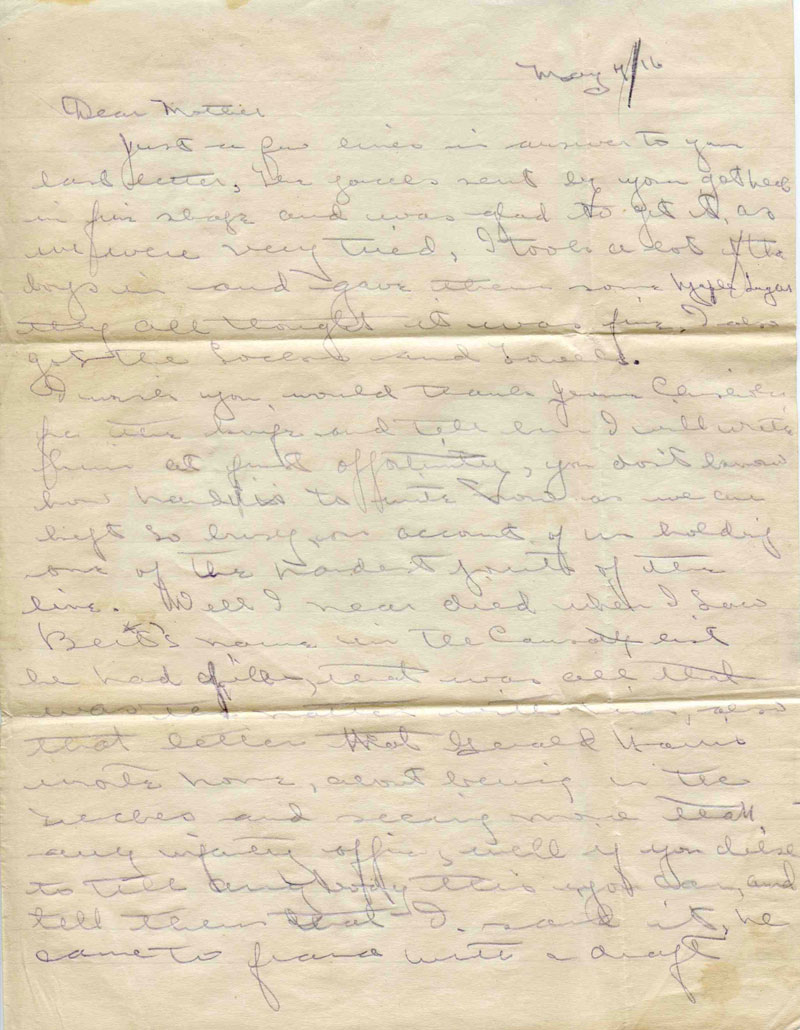 May 4/16
Dear Mother
Just a few lines in answer to your
last letter, The parcel sent by you got here
in fine shape and was glad to get it, as
we were very tired, I took a lot of the
boys in and gave them some Maple Sugar
they all thought it was fine, I also
got the Socks and Towels.
I wish you would thank
for the and tell him I will write
him at first opportunity, you don't know
how hard is to write home as we are
kept so busy, on account of us holding
one of the hardest points of the
line. Well I near died when I saw
Bert's name in the Casualty list
he had, that was all that
was the matter with him, also
that letter that Gerald
wrote home, about being in the
trenches and seeing more than
any officer, well if you
to tell anybody this you can, and
tell them that I said it, he
came to France with a draft